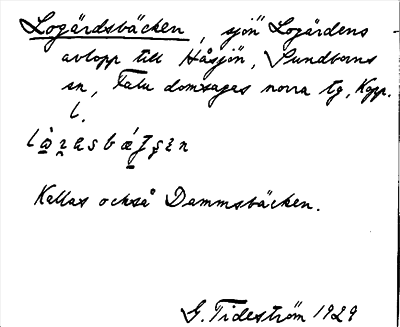 Logärdsbäcken, sjön Logärdens
avlopp till Håsjön, Sundborns
sn, Falu domsagas norra tg, Kopp.
l.
Kallas också Dammsbäcken.
G. Tideström 1929